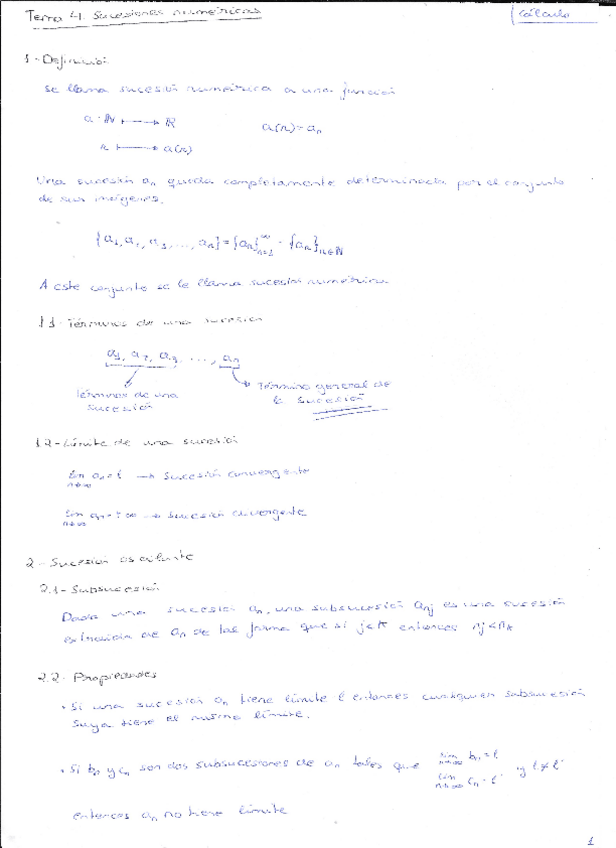 Tema 4. Sucesiones numéricas
Cálculo
1-Definición
Se llama sucesión numérica a una función
a: ℕ ⟼ ℝ a(n)=aₙ
n ⟼ a(n)
Una sucesión aₙ queda completamente determinada por el conjunto
de sus imágenes.
{a₁, a₂, a₃, ..., aₙ} = {aₙ}ₙ₌₁^∞ = {aₙ}ₙ∈ℕ
A este conjunto se le llama sucesión numérica
1.1-Términos de una sucesión
a₁, a₂, a₃, ..., aₙ
Términos de una
sucesión
Término general de
la sucesión
1.2-Límite de una sucesión
lim aₙ = l → Sucesión convergente
n→∞
lim aₙ = ±∞ → Sucesión divergente
n→∞
2-Sucesión oscilante
2.1-Subsucesión
Dada una sucesión aₙ, una subsucesión aₙⱼ es una sucesión
extraída de aₙ de tal forma que si j<k entonces nⱼ<nₖ
2.2-Propiedades
• Si una sucesión aₙ tiene límite l entonces cualquier subsucesión
suya tiene el mismo límite.
• Si bₙ y cₙ son dos subsucesiones de aₙ tales que lim bₙ = l
n→∞
lim cₙ = l' y l ≠ l'
n→∞
entonces aₙ no tiene límite
1